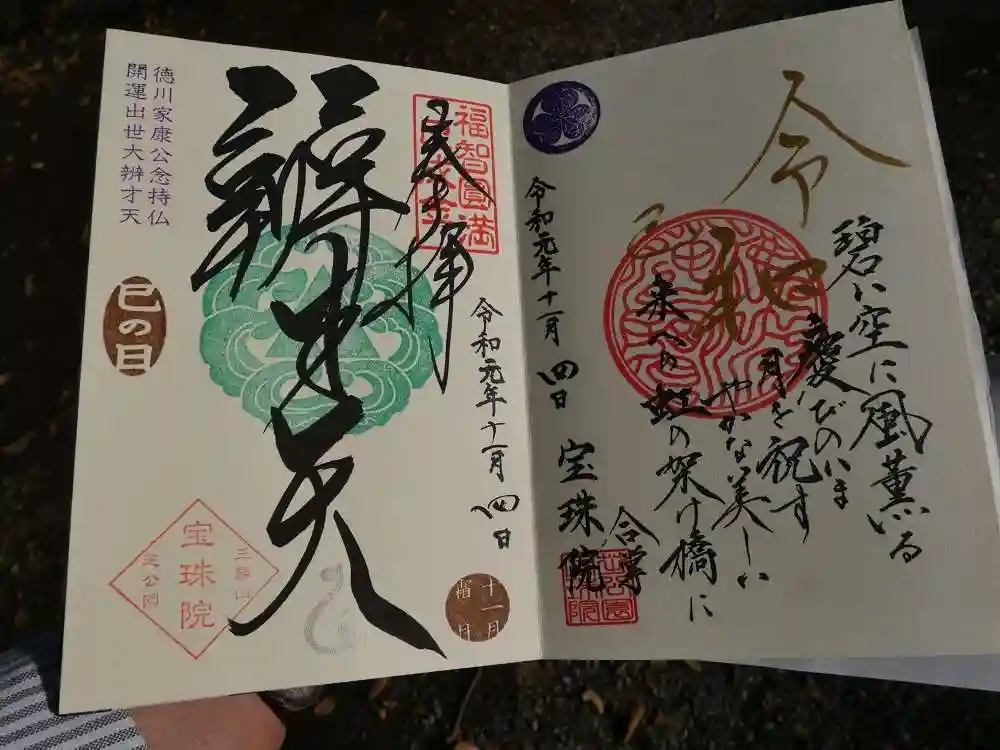 奉拝
福智圓満
令和元年十一月四日
辨才天
徳川家康公念持仏
開運出世大辨才天
巳の日
三縁山
宝珠院
芝公園
十一月
霜月
令和
碧い空に風薫いる
慶びのいま
月を祝す
やかな美しい
未来への虹の架け橋に
合掌
令和元年十一月四日
宝珠院